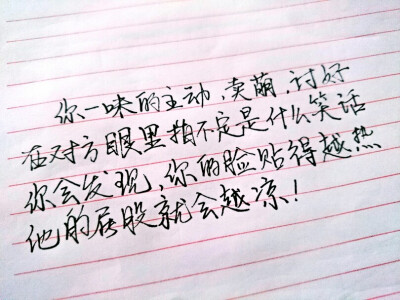 你一味的主动,卖萌,讨好
在对方眼里指不定是什么笑话
你会发现,你的脸贴得越热
他的屁股就会越凉!